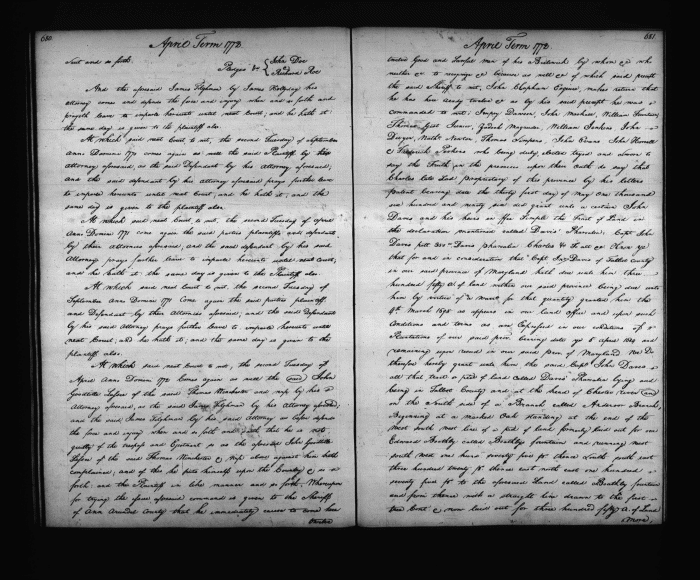 680.
April Term 1772
Suit and so forth.
Pledges &c { John Doe & Richard Roe
And the aforesaid James Tilghman by James Holliday his
attorney comes and defends the force and injury when and so forth and
prayeth leave to imparle hereunto until next Court, and he hath it;
the same day is given to the plaintiff also.
At which said next Court to wit, the second Tuesday of September
Anno Domini 1770 comes again as well the said Plaintiff by his
attorney aforesaid, as the said Defendant by his attorney aforesaid,
And the said defendant by his attorney aforesaid prays further leave
to imparle hereunto until next Court, and he hath it; and the
same day is given to the plaintiff also.
At which said next Court to wit, the second Tuesday of April
Anno Domini 1771 come again the said parties plaintiff and defendant
by their attornies aforesaid, and the said defendant by his said
Attorney prays further leave to imparle hereunto until next Court,
and he hath it, the same day is given to the Plaintiff also.
At which said next Court to wit, the second Tuesday of
September Anno Domini 1771 Come again the said parties plaintiff,
and Defendant, by their Attornies aforesaid; and the said Defendant
by his said Attorney prays further leave to imparle hereunto until
next Court; and he hath it, and the same day is given to the
plaintiff also.
At which said next Court to wit, the second Tuesday of
April Anno Domini 1772 Comes again as well the said John
Goodtitle Lessee of the said Thomas Manchester and by his
Attorney aforesaid, as the said James Tilghman by his Attorney aforesaid,
and the said James Tilghman by his said Attorney as before defends
the force and injury when and so forth and saith that he is not
guilty of the trespass and Ejectment as the aforesaid John Goodtitle
Lessee of the said Thomas Manchester above against him hath
complained; and of this he puts himself upon the Country & so
forth: and the Plaintiff in like manner and so forth; Whereupon
for trying the issue aforesaid command is given to the Sheriff
of Ann Arundel County that he immediately cause to come here
twelve
681.
April Term 1772
twelve Good and Lawful men of his Bailiwick by whom & who
neither & to recognize & because as well & of which said precept
the said Sheriff to wit, John Clapham Esquire, makes return that
he has here ready twelve & as by his said precept he was
commanded to wit; John William
Thomas Junior, William Jenkins John
Thomas John Evans John
& who being duly elected tryed and sworn to
say the truth in the premises upon their oath do say that
Charles late Lord Proprietary of this province by his letters
patent bearing date the thirty first day of May one thousand
six hundred and ninety six did grant unto a certain John
Davis and his heirs in fee simple the Tract of Land in
the declaration mentioned called Davis's Pharsalia: Capt John
Davis patt 350 as Davis's Pharsalia Charles &c To all &c Know ye
that for and in consideration that Capt Jno Davis of Talbot county
in our said province of Maryland hath due unto him three
hundred fifty as of land within our said province being due unto
him by virtue of a warrt for that quantity granted him the
4th March 1695 as appears in our land office and upon such
Conditions and terms as are expressed in our conditions of
Plantations of our said prov. bearing date ye 5 april 1684 and
remaining upon record in our said prov of Maryland We Do
therefore hereby grant unto him the said Capt John Davis
all that tract or p'cel of land called Davis's Pharsalia lying and
being in Talbot County and at the head of Chester river and
on the North side of a Branch called Andover Branch,
Beginning at a marked Oak standing at the end of the
west south west line of a p'cel of land formerly laid out for one
Edward Bathby called Bathbys fountain and running west
south west one hundr seventy five ps thence south south east
three hundred twenty ps thence east north east one hundred
seventy five ps to the aforesaid Land called Bathby fountain
and from thence with a straight line drawn to the first
tree Cont & now laid out for three hundred fifty a. of Land
more